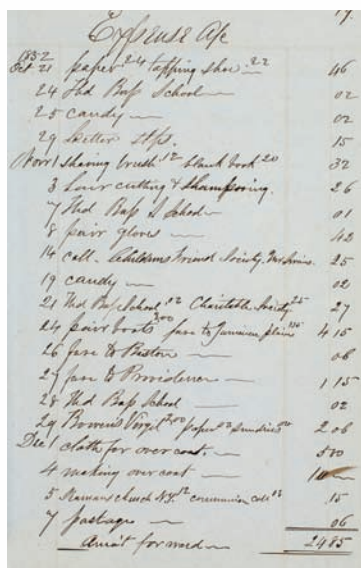 17.
Expense a/c
1852
Oct 21 paper 24 tapping shoe 22 46
24 Hd Bap School 02
25 candy 02
29 Letter stps. 15
Novr 1 shaving brush 12 blank book 20 32
3 hair cutting & shampooing. 26
7 Hd Bap S School 01
8 pair gloves 42
14 coll. Childrens friend Society. 25
19 candy 02
21 Hd Bap School 02 Charitable Society 25 27
24 pair boots 300 fare to Jamaica plain 115 4 15
26 fare to Boston 06
27 fare to Providence 1 15
28 Hd Bap School 02
29 Bowens Virgil 200 paper sundries 2 06
Dec 1 cloth for over coat. 500
4 making over coat 10
5 church N.Y. 12 communion coll 03 .15
7 postage 06
Am't forward 2485